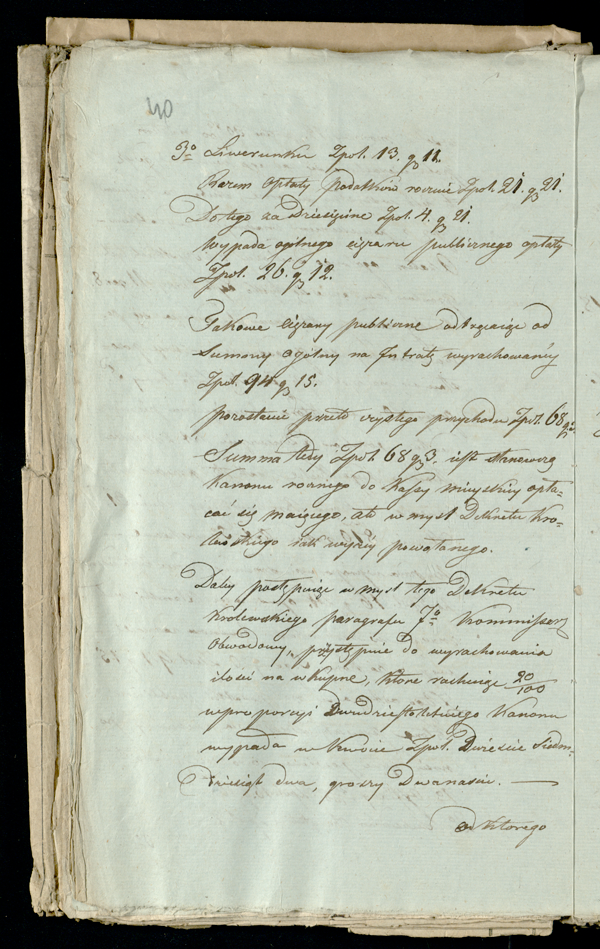 40
3o Liwerunku Zpol. 13. g 11.
Razem opłaty podatków rocznie Zpol. 21. g 21.
Do tego za Dziesięcine Zpol. 4. g 21
wypada ogólnego ciężaru publicznego opłaty
Zpol. 26. g 12.
Takowe ciężary publiczne odtrącaiąc od
Summy ogólny na Intratę wyrachowaney
Zpol. 94 g 15.
pozostanie przeto czystego przychodu Zpol. 68 g 3.
Summa tedy Zpol. 68 g 3. iest stanowczą
Kanonu rocznego do Kassy mieyskiey opła-
cać się maiącego, ale w myśl Dekretu Kró-
lewskiego iak wyżey powołanego.
Daley postępuiąc w myśl tego Dekretu
Królewskiego paragrafu 7o Kommissarz
Obwodowy, przystępuie do wyrachowania
ilości na wkupne, które rachuiąc 20/100
w proporcyi Dwudziestoletniego Kanonu
wypada w kwocie Zpol. Dwieście Siedm-
dziesiąt dwa, groszy Dwanaście. —
od którego